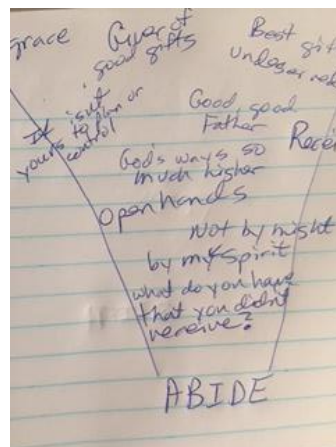 grace Giver of Best gif
good gifts undeserved
It isn't
yours to plan or
control
Good, good
Father
Recei
God's ways so
much higher
Open hands
Not by might
by my Spirit
what do you have
that you didn't
receive?
ABIDE